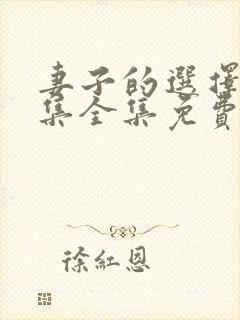 妻子的選擇
集全集免費
徐紅恩